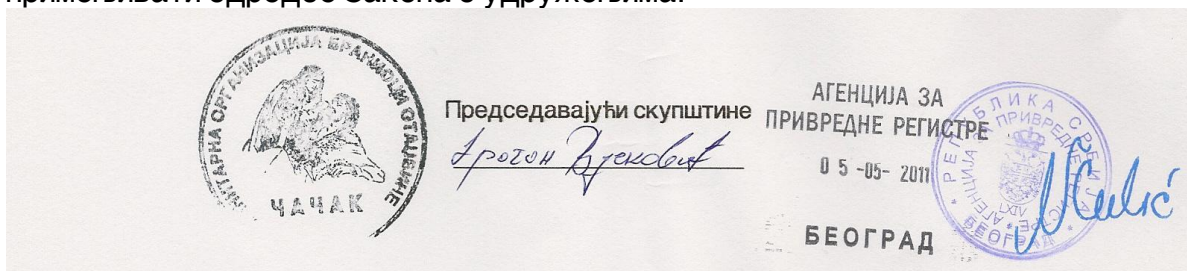 примењивати одредбе Закона о удружењима.
АРНА ОРГАНИЗАЦИЈА БРАНИОЦИ ОТАЏБИНЕ
ЧАЧАК
Председавајући скупштине
АГЕНЦИЈА ЗА
ПРИВРЕДНЕ РЕГИСТРЕ
05-05-2011
БЕОГРАД
РЕПУБЛИКА СРБИЈА
АГЕНЦИЈА ЗА ПРИВРЕДНЕ РЕГИСТРЕ
LXIV
БЕОГРАД